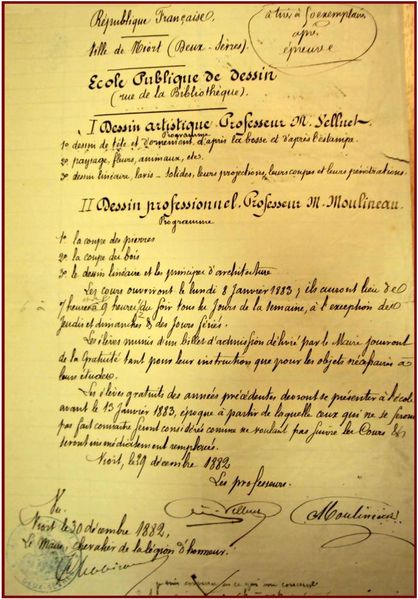 République Française.
à tirer à 50 exemplaires
après
épreuve
Ville de Niort (Deux-Sèvres).
Ecole Publique de Dessin
(rue de la Bibliothèque).
I Dessin artistique. Professeur M. Velluet.
Programme
1º dessin de tête et d'ornement, d'après la bosse et d'après l'estampe.
2º paysage, fleurs, animaux, etc.
3º dessin linéaire, lavis - solides, leurs projections, leurs coupes et leurs pénétrations.
II Dessin professionnel. Professeur M. Moulineau.
Programme
1º la coupe des pierres
2º la coupe du bois
3º le dessin linéaire et les principes d'architecture
Les cours ouvriront le lundi 8 Janvier 1883; ils auront lieu de
7 heures à 9 heures du soir tous les jours de la semaine, à l'exception des
jeudis et dimanches & des jours fériés.
Les élèves munis d'un billet d'admission délivré par le Maire jouiront
de la gratuité tant pour leur instruction que pour les objets nécessaires à
leurs études.
Les élèves gratuits des années précédentes devront se présenter à l'école
avant le 15 Janvier 1883, époque à partir de laquelle ceux qui ne se seront
pas fait connaître seront considérés comme ne voulant pas suivre les Cours &
seront immédiatement remplacés.
Niort, le 29 décembre 1882
Les professeurs.
Vu.
Velluet
Moulineau
Niort le 30 décembre 1882,
Le Maire, chevalier de la légion d'honneur.